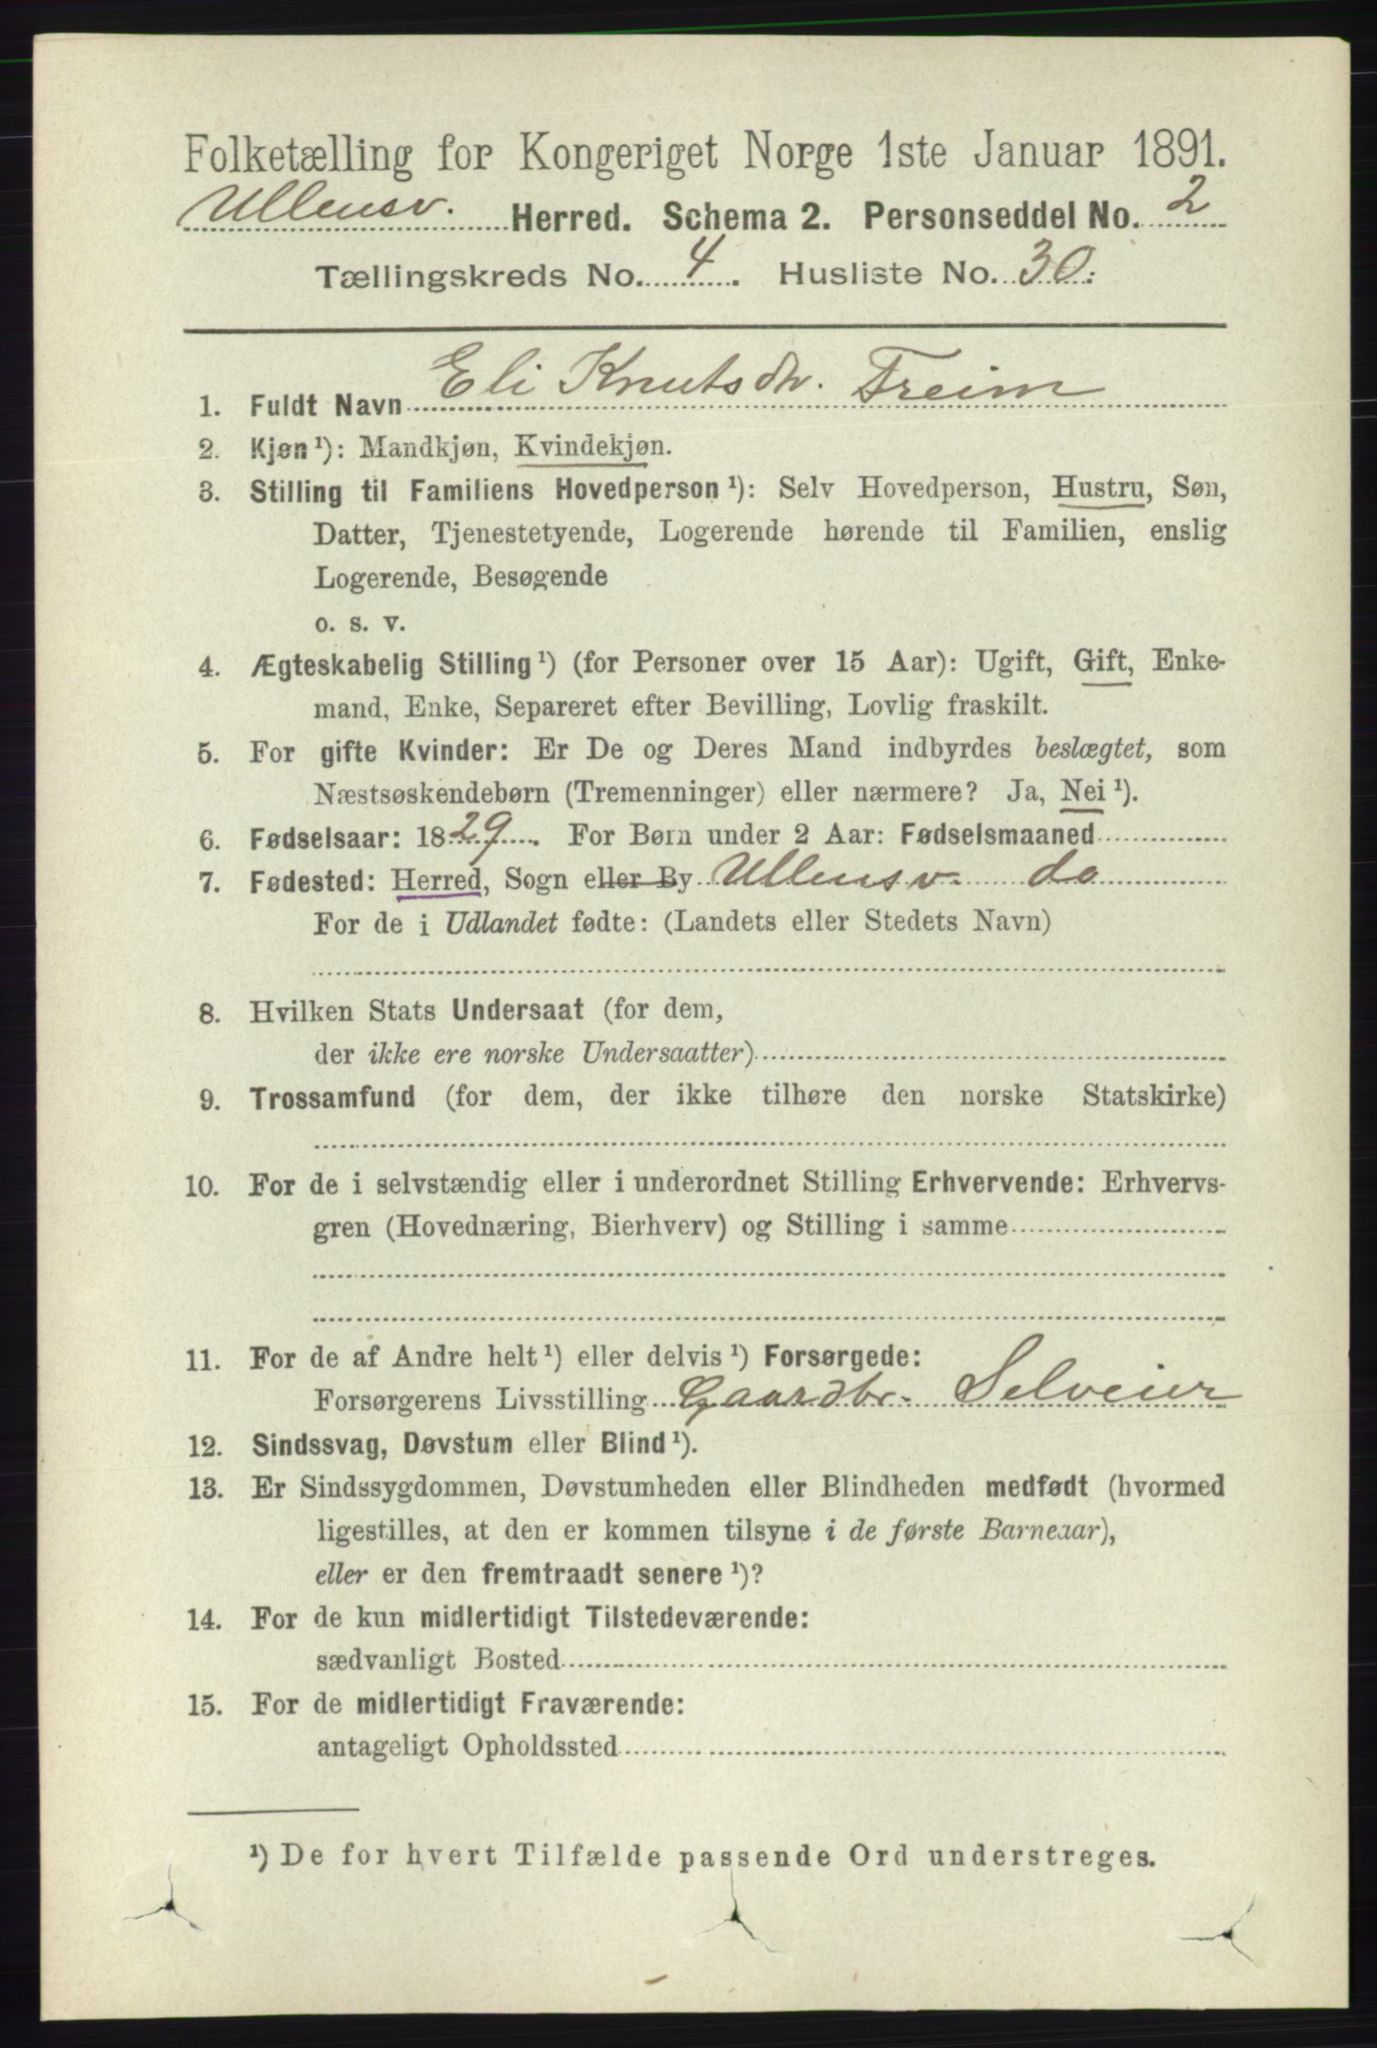 Folketælling for Kongeriget Norge 1ste Januar 1891.
Ullensv. Herred. Schema 2. Personseddel No. 2
Tællingskreds No. 4. Husliste No. 30.
1. Fuldt Navn Eli Knutsdtr. Freim
2. Kjøn ¹): Mandkjøn, Kvindekjøn.
3. Stilling til Familiens Hovedperson ¹): Selv Hovedperson, Hustru, Søn,
Datter, Tjenestetyende, Logerende hørende til Familien, enslig
Logerende, Besøgende
o. s. v.
4. Ægteskabelig Stilling ¹) (for Personer over 15 Aar): Ugift, Gift, Enke-
mand, Enke, Separeret efter Bevilling, Lovlig fraskilt.
5. For gifte Kvinder: Er De og Deres Mand indbyrdes beslægtet, som
Næstsøskendebørn (Tremenninger) eller nærmere? Ja, Nei ¹).
6. Fødselsaar: 1829. For Børn under 2 Aar: Fødselsmaaned
7. Fødested: Herred, Sogn eller By Ullensv. do
For de i Udlandet fødte: (Landets eller Stedets Navn)
8. Hvilken Stats Undersaat (for dem,
der ikke ere norske Undersaatter)
9. Trossamfund (for dem, der ikke tilhøre den norske Statskirke)
10. For de i selvstændig eller i underordnet Stilling Erhvervende: Erhvervs-
gren (Hovednæring, Bierhverv) og Stilling i samme
11. For de af Andre helt ¹) eller delvis ¹) Forsørgede:
Forsørgerens Livsstilling Gaardbr. Selveier
12. Sindssvag, Døvstum eller Blind ¹).
13. Er Sindssygdommen, Døvstumheden eller Blindheden medfødt (hvormed
ligestilles, at den er kommen tilsyne i de første Barneaar),
eller er den fremtraadt senere ¹)?
14. For de kun midlertidigt Tilstedeværende:
sædvanligt Bosted
15. For de midlertidigt Fraværende:
antageligt Opholdssted
¹) De for hvert Tilfælde passende Ord understreges.